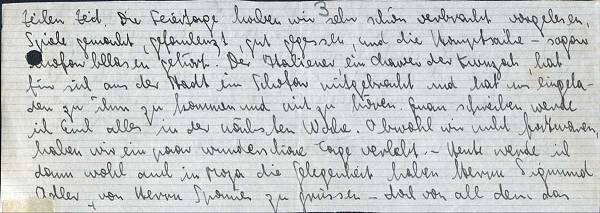 3
teilen seid. Die Feiertage haben wir sehr schön verbracht vorgelesen,
Spiele gemacht, gefaulenzt, gut gegessen, und die Hauptsache –
gehört. Der Italiener ein Chawer der Kwuzah hat
für sich aus der Stadt ein mitgebracht und hat uns eingela-
den zu ihm zu kommen und mit zu hören. Genau schreiben werde
ich Euch alles in der nächsten Woche. Obwohl wir nicht fort waren,
haben wir ein paar wunderschöne Tage verlebt. – Heute werde ich
dann wohl auch in die Gelegenheit haben Herrn Sigmund
Adler von Herrn zu grüssen – doch von all dem das